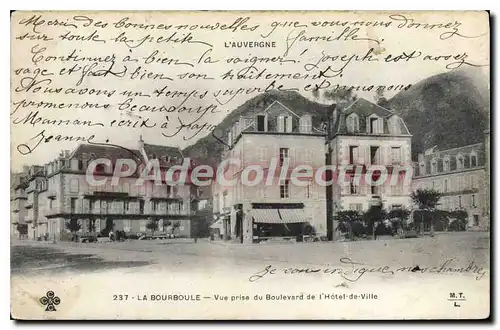 Merci des bonnes nouvelles que vous nous donnez
L'AUVERGNE
sur toute la petite famille.
Continuez à bien la soigner, Joseph est très
sage et fait bien son traitement
Nous avons un temps superbe et nous nous
promenons beaucoup
Maman écrit à
Jeanne
CPARAMA.COM
Je vous indique nos chambres
237 - LA BOURBOULE - Vue prise du Boulevard de l'Hôtel-de-Ville
M. T.
L.